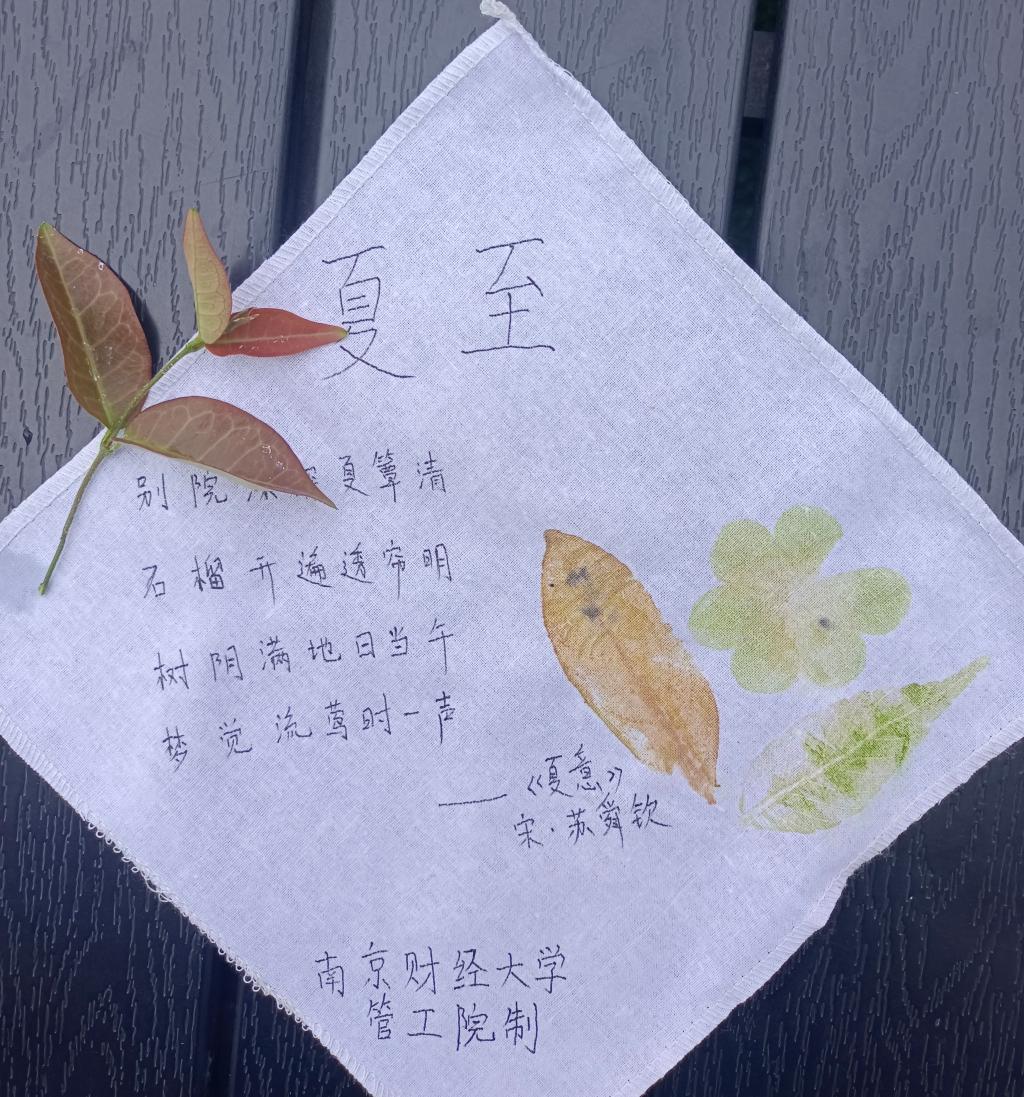 夏至
别院深深夏簟清
石榴开遍透帘明
树阴满地日当午
梦觉流莺时一声
——《夏意》
宋·苏舜钦
南京财经大学
管工院制